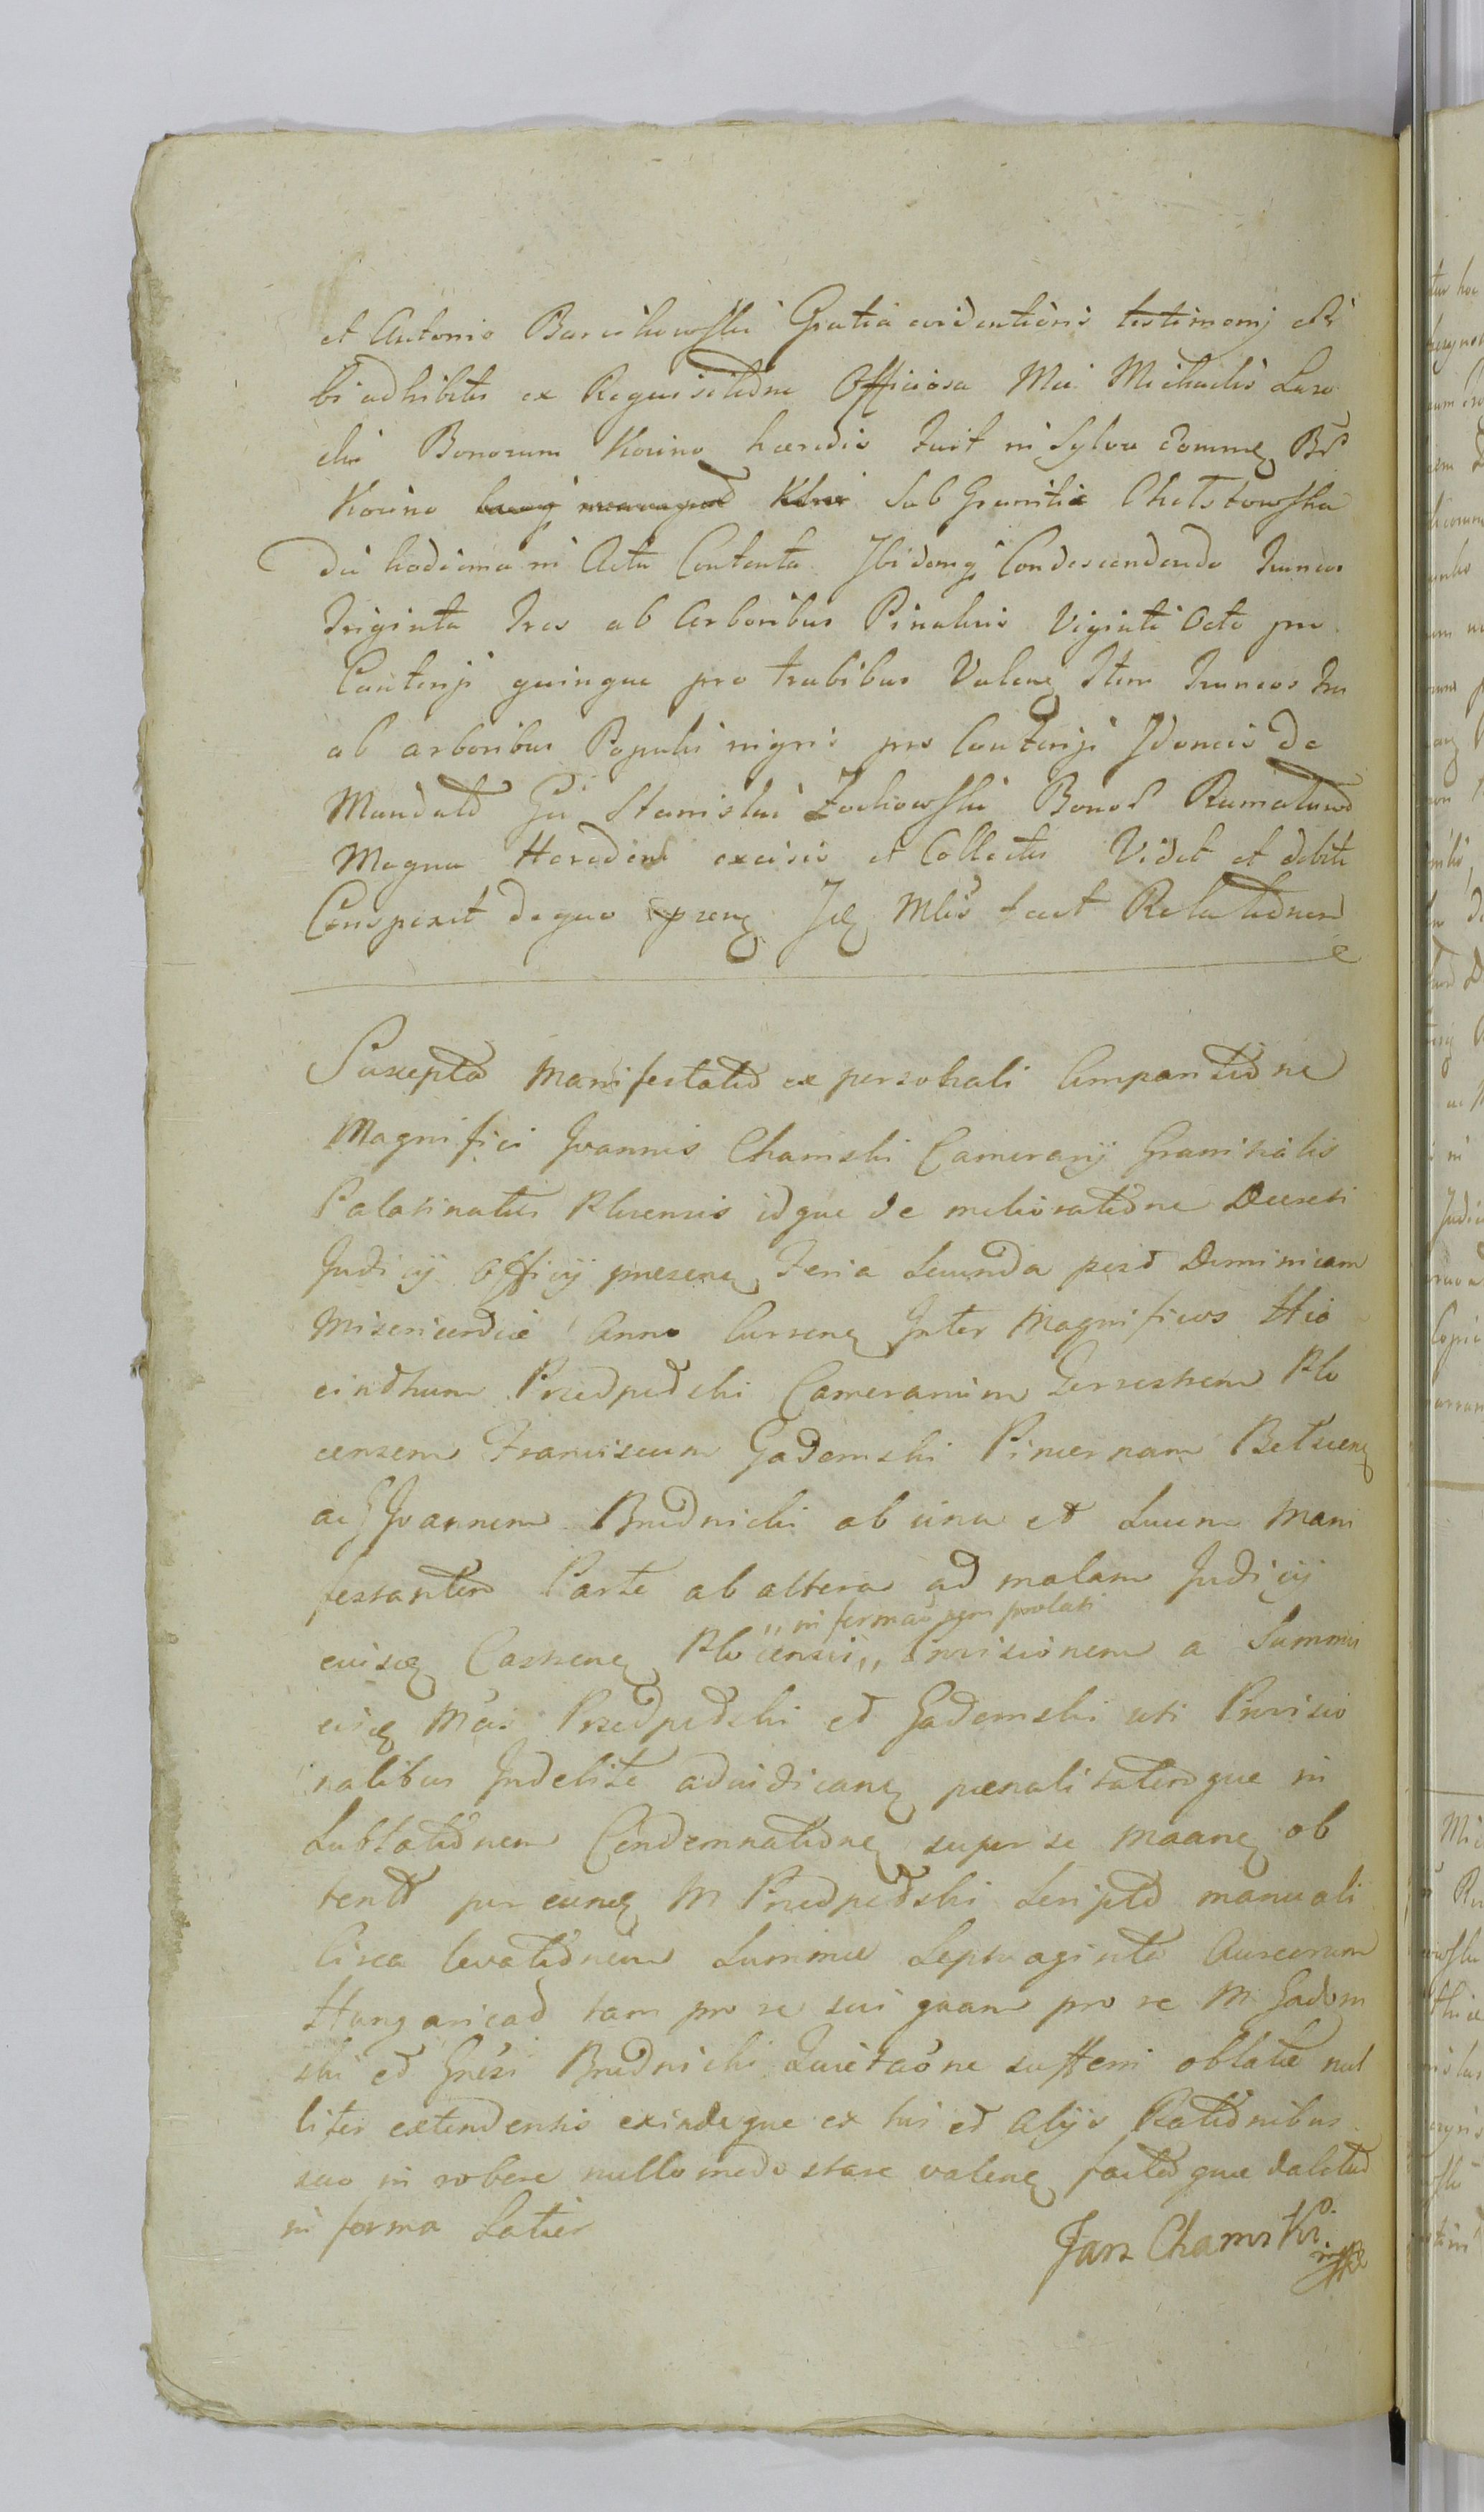 et Antonio Barcikowski Gratia evidentioris testimonij si
bi adhibitis ex Requisitione Officiosa Mei Michaelis Laso
cki Bonorum Kocino hæredis fuit in Sylva
Kocino sub Granitie Chelstowska
die hodierna in Actu Contenta Ibidemq Condescendendo truncos
Triginta Tres ab Arboribus Pinalibus Viginti Octo pro
quinque pro trabibus Valen Item Truncos tres
ab arboribus Populi nigris pro Idoneis de
Mandato Gsi Stanislai Zochowski Bonor
Magna Heredem excisis et Collectis Vidit et debite
Conspexit de quo præns Idem Mlis fecit Relationem
Suscepta Manifestatio ex personali Comparitione
Magnifici Joannis Chamski Camerarij Granicialis
Palatinatus Plocensis idque de melioratione Decreti
Judicij Officij præsen Feria Secunda post Dominicam
Misericordiæ Anno Curren Inter Magnificos Hia
cinthum Przedpełski Camerarium Terrestrem Plo
censem Franciscum Gadomski Pincernam
ac G Joannem Brudnicki ab una et Suum Mani
festantem Parte ab altera ad malam Judicij
ejusdem Castren Plocensis,, Provisionem a Summis
,, in formationem prolati
eisdem Mcis Przedpełski et Gadomski uti Provisio
nalibus Indebite adjudican pœnalitatemque in
Sublationem Condemnation super se Maan ob
tent per eund M Przedpełski Scripto manuali
circa levationem Summæ Septuaginta Aureorum
Hungaricad tam pro se sui quam pro se M Gadom
ski et Gnesi Brudnicki Quietaone sufferri oblatæ nul
liter extendentis exindeque ex his et alijs Rationibus
suo in robere nullo modo stare valen factoque
in forma Latior
Jan Chamski mpp